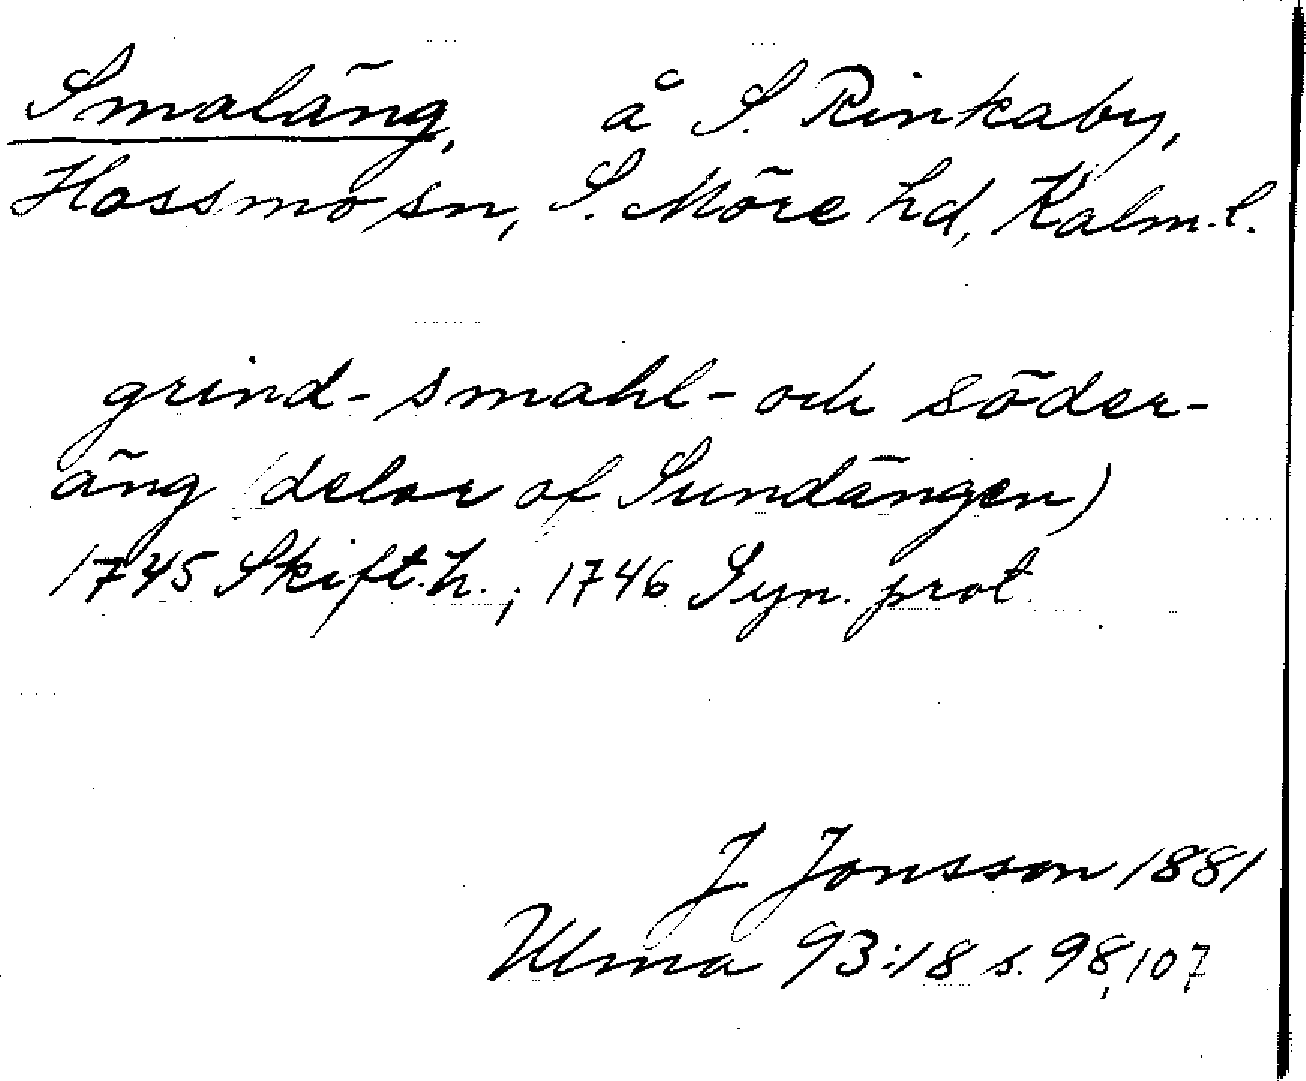 Smaläng, å S. Rinkaby,
Hossmo sn, S. Möre hd, Kalm. l.
grind- smahl- och söder-
äng (delar af Sundängen)
1745 Skift.h.; 1746 Syn. prot
J Jonsson 1881
Ulma 93:18 s. 98, 107